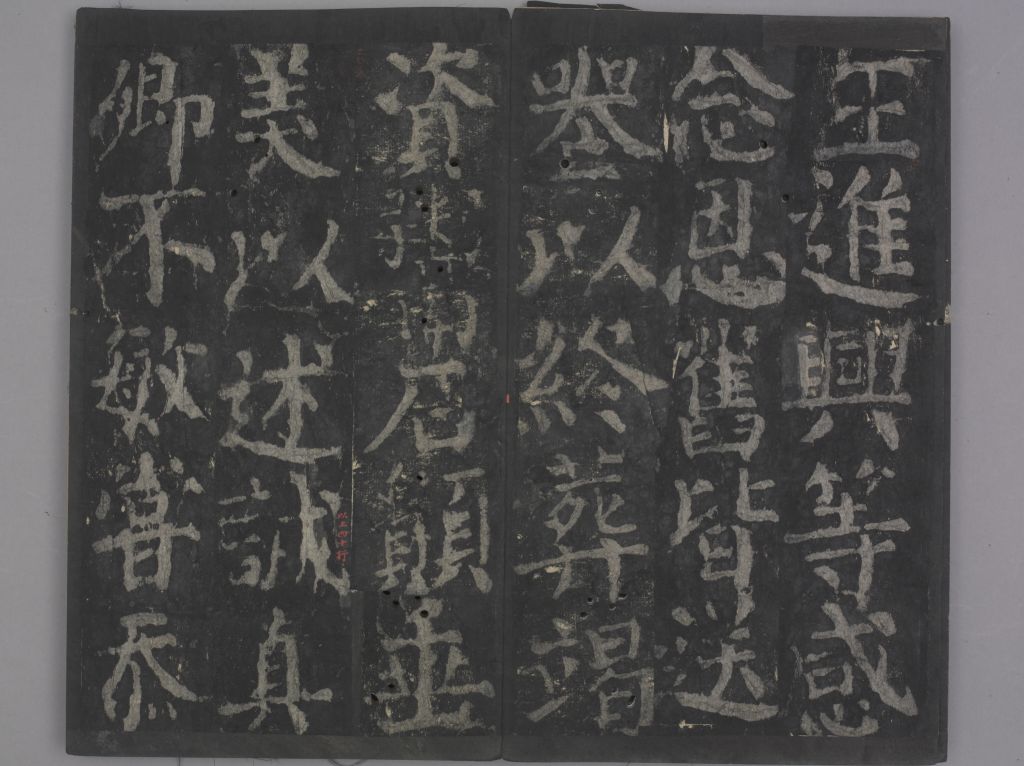 王進興等感
念恩舊皆送
喪以終葬竭
資鬻石願垂
美以述誠真
卿不敏嘗忝
以上四行